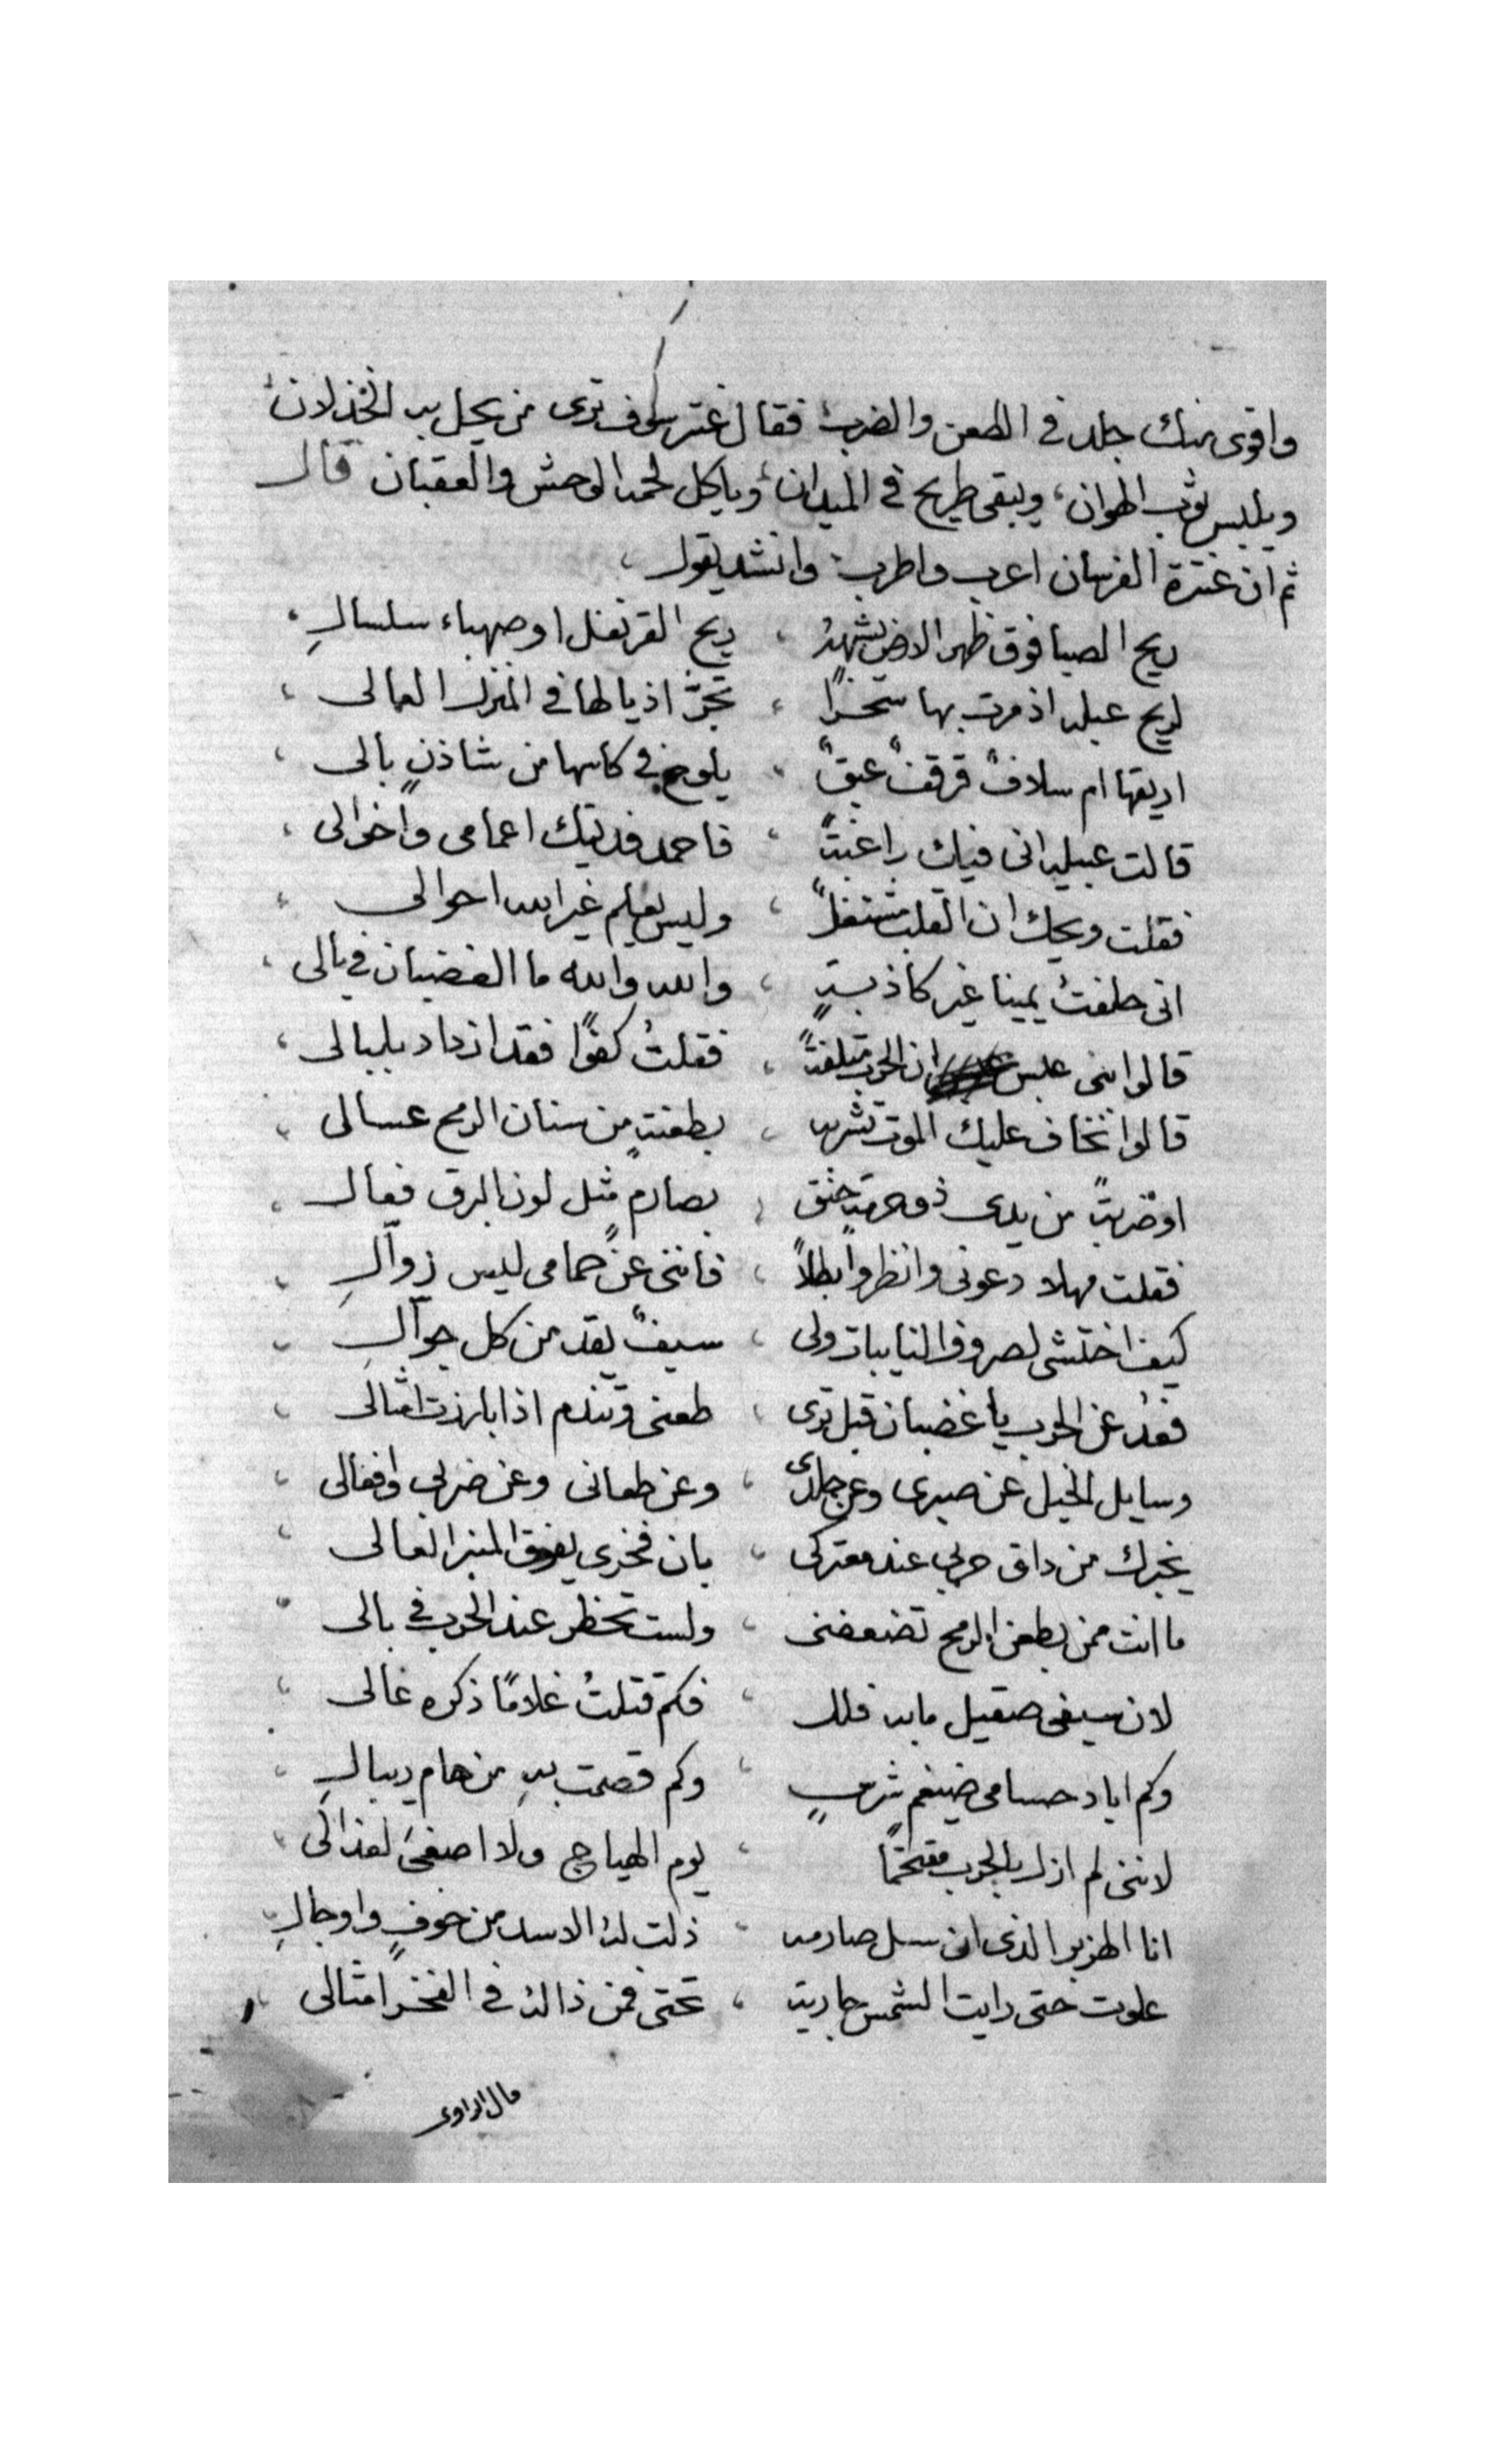 واقوى منك جلد في الطعن والضرب فقال عنتر سوف ترى من يحل به الخذلان
ويلبس ثوب الهوان، ويبقى طريح في الميدان، وياكل لحمه الوحش والعقبان قال
ثم ان عنترة الفرسان اعرب واطرب وانشد يقول،
ريح الصبا فوق ظهر الارض يشهدُ ، ريح القرنفل او صهباء سلسالِ،
لريح عبله اذ مرت بها سَحَرًا ، تجرُّ اذيالها في المنزل العالى ،
اريقها ام سلافٌ قرقفٌ عبقٌ ، يلوح في كاسها من شاذنٍ بالى ،
قالت عبيله انى فيك راغبةً ، فاحمد فديتك اعمامى واخوالى ،
فقلت ويحك ان القلب مشتغلٌ ، وليس يعلم غير الله احوالى ،
انى حلفتُ يمينا غير كاذبةٍ ، والله والله ما الغضبان في بالى ،
قالوا بنى عبس ان الحرب متلفةً ، فقلتُ كفوًا فقد ازداد بلبالى ،
قالوا نخاف عليك الموت تشربه ، بطعنةٍ من سنان الرمح عسالى ،
او ضربةً من يدى ذو حنق ، بصارمٍ مثل لون البرق فعال ،
فقلت مهلا دعونى وانظروا بطلاً ، فاننى عن حمامى ليس زوالِ ،
كيف اختشى لصروف النايبات ولى ، سيفٌ يقد من كل جوالِ ،
فعُد عن الحرب يا غضبان قبل ترى ، طعنى وتندم اذا بارزت امثالى ،
وسايل الخيل عن صبرى وعن جلدى ، وعن طعانى وعن ضربى وافعالى ،
يخبرك من داق حربى عند معتركى ، بان فخرى يفوق المنبر العالى ،
ما انت ممن بطعن الرمح تضعضنى ، ولست تخطر عند الحرب في بالى ،
لان سيفى صقيل ما به فلل ، فكم قتلتُ غلامًا ذكره غالى ،
وكم اباد حسامى ضيغم شرسٍ ، وكم قصمت بهِ من هام ريبالِ ،
لاننى لم ازل بالحرب مقتحمًا ، يوم الهياج ولا اصغى لعذالى ،
انا الهزبر الذى ان سل صارمه ، ذلت لهُ الاسد من خوفٍ واوجالِ ،
علوت حتى رايت الشمس جارية ، تحتى فمن ذا له في الفخر امثالى ،
قال الراوى